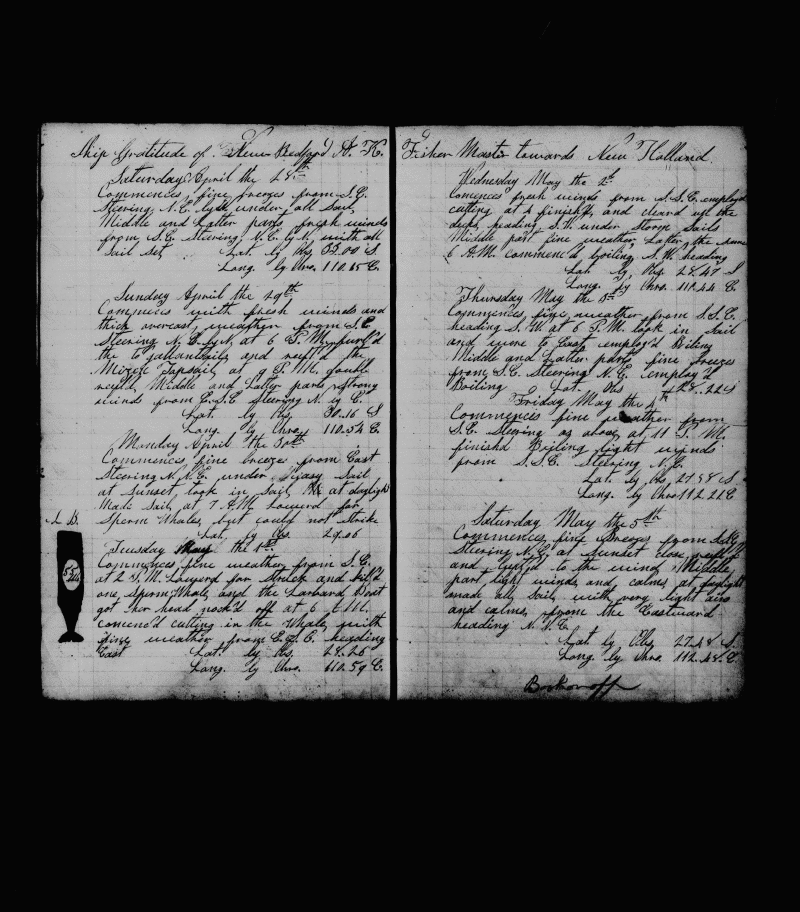 Ship Gratitude of New Bedford A. K.
Saturday April the 28th
Commences, fine breezes from S.E.
Steering N.E. by E under all Sail,
Middle and Latter parts fresh winds
from S.E. Steering N.E. by N. with all
Sail Set, Lat. by Obs. 32.00 S.
Long. by Chro. 110.15 E.
Sunday April the 29th
Commences with fresh winds and
thick overcast, weather from S.E
Steering N.E. by N, at 6 P.M. furl'd
the to gallantsails, and reef'd the
Mizen Topsail, at 9 P.M. double
reef'd, Middle and Latter parts strong
winds from E.S.E Steering N. by E.
Lat. by Obs. 30.16 S
Long. by Chro. 110.54 E.
Monday April the 30th
Commences fine breezes from East
Steering N.N.E. under Easy Sail
at Sunset, took in Sail, at daylight
Made Sail, at 7 A.M. Lowerd for
Sperm Whales, but could not Strike
Lat. by Obs. 29.06
L. B.
Tuesday May the 1st
Commences, fine weather from S.E.
at 2 P.M. Lowerd for Struck and kill'd
one Sperm Whale, and the Larbard Boat
got her head nock'd off at 6 P.M.
comenc'd cutting in the Whale, with
fine weather from E.S.E. heading
East Lat. by Obs. 28.26
Long. by Chro. 110.59 E.
Fisher Master towards New Holland.
Wednesday May the 2d
Comences fresh winds from S.S.E. employd
cutting at 4 finish'd, and cleard up the
decks, heading S.W. under Storm Sails
Middle part fine weather, Latter, the same
6 A.M. Commenc'd boiling S.W. heading
Lat. by Obs. 28.47 S
Long. by Chro. 111.44 E
Thursday May the 3d
Commences, fine weather from S.S.E.
heading S.W. at 6 P.M. took in Sail
and wore to East, employ'd Boiling
Middle and Latter parts fine breezes
from S.E. Steering N.E. employ'd
Boiling Lat. Obs 28.22 S
Friday May the 4th
Commences fine weather from
S.E. Steering as above, at 11 P.M.
finishd Boiling light winds
from S.S.E. Steering N.E.
Lat. by Obs, 27.58 S
Long. by Chro 112.22 E
Saturday May the 5th
Commences, fine Breezes from S.S.E
Steering N.E, at Sunset close reef'd
and luff'd to the wind Middle
part, light winds, and calms, at daylight
made all Sail with very light airs
and calms, from the Eastward
heading N.N.E.
Lat by Obs, 27.48 S.
Long. by Chro. 112.48 E